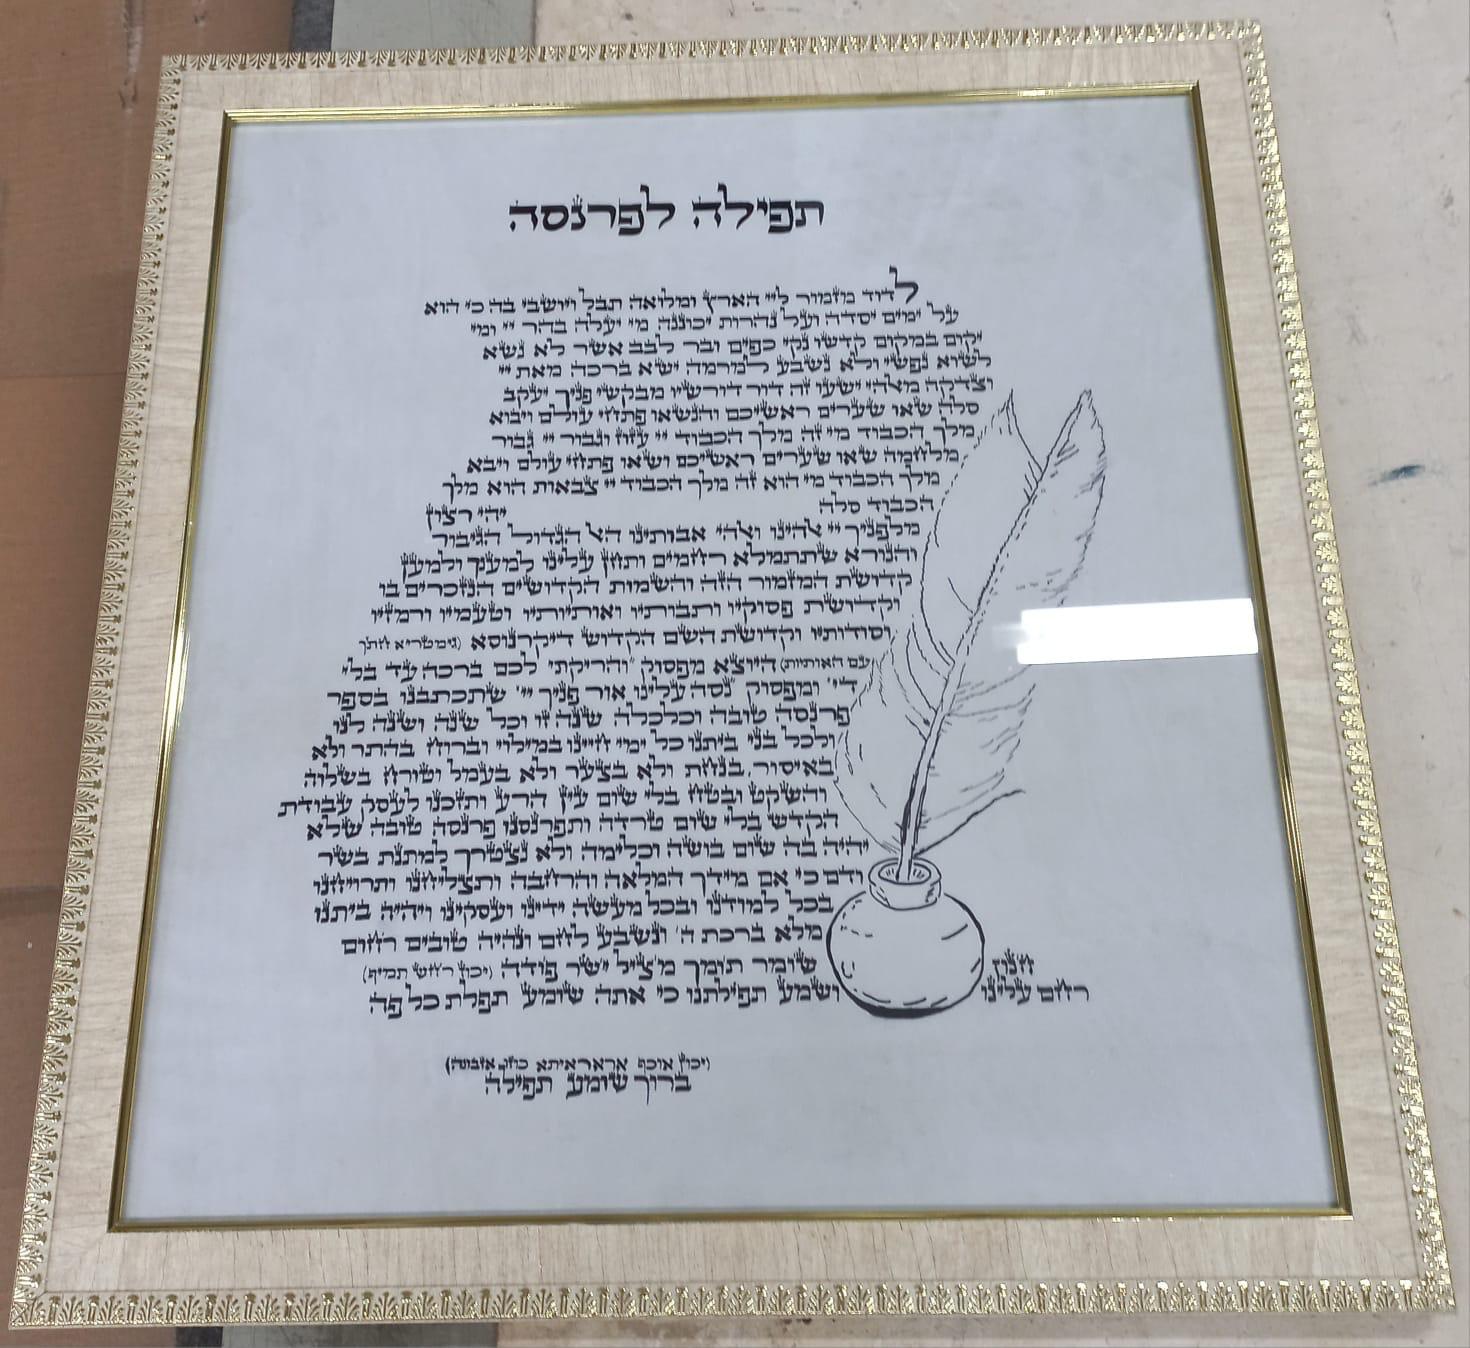 תפילה לפרנסה
לדוד מזמור ליי הארץ ומלואה תבל ויושבי בה כי הוא
על ימים יסדה ועל נהרות יכוננה מי יעלה בהר יי ומי
יקום במקום קדשו נקי כפים ובר לבב אשר לא נשא
לשוא נפשי ולא נשבע למרמה ישא ברכה מאת יי
וצדקה מאלהי ישעו זה דור דורשיו מבקשי פניך יעקב
סלה שאו שערים ראשיכם והנשאו פתחי עולם ויבוא
מלך הכבוד מי זה מלך הכבוד יי עזוז וגבור יי גבור
מלחמה שאו שערים ראשיכם ושאו פתחי עולם ויבא
מלך הכבוד מי הוא זה מלך הכבוד יי צבאות הוא מלך
הכבוד סלה יהי רצון
מלפניך יי אלהינו ואלהי אבותינו האל הגדול הגיבור
והנורא שתתמלא רחמים ותחון עלינו למענך ולמען
קדושת המזמור הזה והשמות הקדושים הנזכרים בו
וקדושת פסוקיו ותבותיו ואותיותיו וטעמיו ורמזיו
וסודותיו וקדושת השם הקדוש דיקרנוסא (גימטריא חתך
עם האותיות) היוצא מפסוק "והריקתי לכם ברכה עד בלי
די" ומפסוק "נסה עלינו אור פניך יי" שתכתבנו בספר
פרנסה טובה וכלכלה שנה זו וכל שנה ושנה לנו
ולכל בני ביתנו כל ימי חיינו במילוי וברוח בהתר ולא
באיסור בנחת ולא בצער ולא בעמל וטורח בשלוה
והשקט ובטח בלי שום עין הרע ותזכנו לעסק עבודת
הקדש בלי שום טרדה ותפרנסנו פרנסה טובה שלא
יהיה בה שום בושה וכלימה ולא נצטרך למתנת בשר
ודם כי אם מידך המלאה והרחבה ותצליחנו ותרויחנו
בכל למודנו ובכל מעשה ידינו ועסקינו ויהיה ביתנו
מלא ברכת ה' ונשבע לחם ונהיה טובים רחום
חנון שומר תומך מציל ישר פודה (יכוין רחש תמיף)
רחם עלינו ושמע תפילתנו כי אתה שומע תפלת כל פה
(יכוין אוכף אראריתא
ברוך שומע תפילה